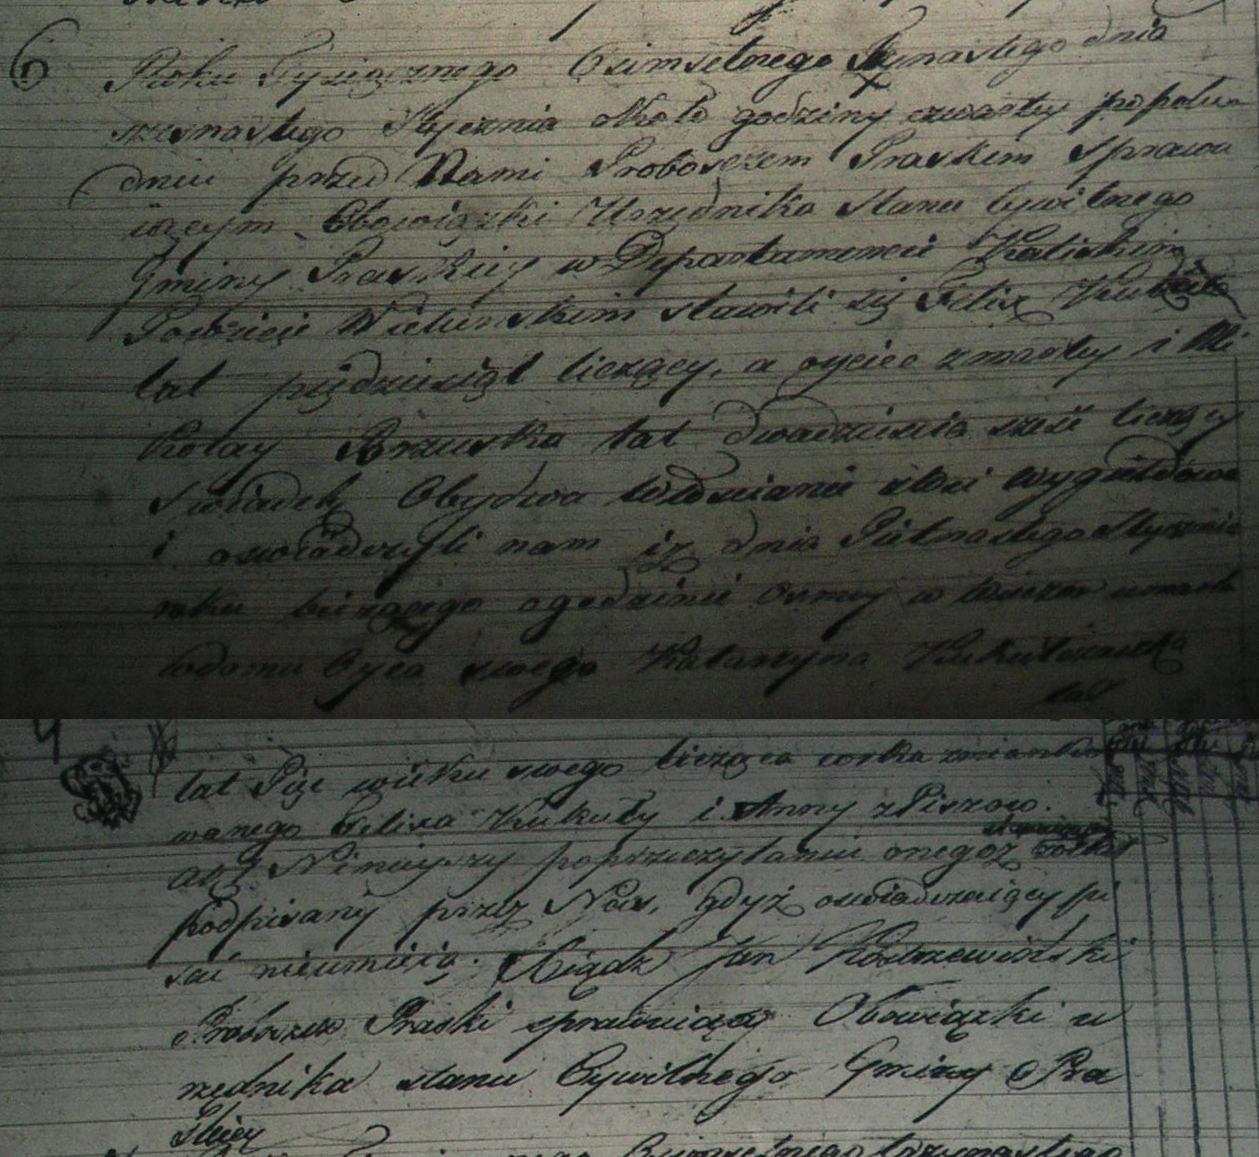 6 Roku Tysiącznego Osimsetnego Trzynastego dnia
szesnastego Stycznia około godziny czwartey popołu
dniu przed Nami Proboszczem Praskim Sprawu
iącym Obowiązki Urzędnika Stanu Cywilnego
Gminy Praskiey w Departamencie Kaliskim
Powiecie Wieluńskim stawili się Felix Kukuła
lat piędziesiąt liczący, a oyciec zmarłey i Mi
kołay Brzuska lat dwadzieścia sześć liczący
Świadek Obydwa Włościanie
i oświadczyli nam iż dnia Piętnastego Stycznia
roku bieżącego ogodzinie Osmey w wieczor umarła
wdomu Oyca swego Katarzyna Kukulczanka
lat
lat Pięć wieku swego licząca corka zmianko
wanego Felixa Kukuły i Anny z Piszow.
Akt Ninieyszy poprzeczytaniu onegoż został
podpisany przez Nas, gdyż oświadczaiący pi
sać nieumieią. Xiądz Jan
Proboszcz Praski sprawuiący Obowiązki u
rzędnika stanu Cywilnego Gminy Pra
skiey
Osimsetnego trzynastego